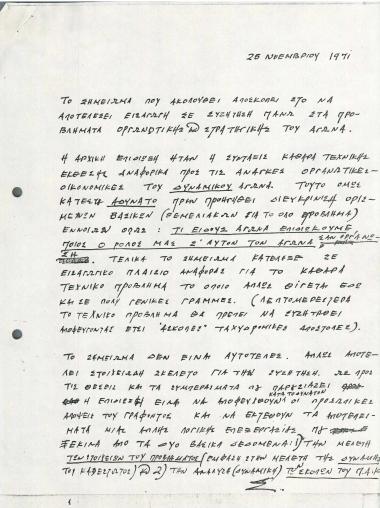 25 ΝΟΕΜΒΡΙΟΥ 1971
ΤΟ ΣΗΜΕΙΩΜΑ ΠΟΥ ΑΚΟΛΟΥΘΕΙ ΑΠΟΣΚΟΠΕΙ ΣΤΟ ΝΑ
ΑΠΟΤΕΛΕΣΕΙ ΕΙΣΑΓΩΓΗ ΣΕ ΣΥΖΗΤΗΣΗ ΠΑΝΩ ΣΤΑ ΠΡΟ-
ΒΛΗΜΑΤΑ ΟΡΓΑΝΩΤΙΚΗΣ ΣΤΡΑΤΗΓΙΚΗΣ ΤΟΥ ΑΓΩΝΑ.
Η ΑΡΧΙΚΗ ΕΠΙΔΙΩΞΗ ΗΤΑΝ Η ΣΥΝΤΑΞΙΣ ΚΑΘΑΡΑ ΤΕΧΝΙΚΗΣ
ΕΚΘΕΣΗΣ ΑΝΑΦΟΡΙΚΑ ΠΡΟΣ ΤΙΣ ΑΝΑΓΚΕΣ ΟΡΓΑΝΩΤΙΚΕΣ-
ΟΙΚΟΝΟΜΙΚΕΣ ΤΟΥ ΔΥΝΑΜΙΚΟΥ ΑΓΩΝΑ. ΤΟΥΤΟ ΟΜΩΣ
ΚΑΤΕΣΤΗ ΑΔΥΝΑΤΟ ΠΡΙΝ ΠΡΟΗΓΗΘΕΙ ΔΙΕΥΚΡΙΝΙΣΗ ΟΡΙΣ-
ΜΕΝΩΝ ΒΑΣΙΚΩΝ (ΘΕΜΕΛΙΑΚΩΝ ΓΙΑ ΤΟ ΟΛΟ ΠΡΟΒΛΗΜΑ)
ΕΝΝΟΙΩΝ ΟΠΩΣ : ΤΙ ΕΙΔΟΥΣ ΑΓΩΝΑ ΕΠΙΔΙΩΚΟΥΜΕ
ΠΟΙΟΣ Ο ΡΟΛΟΣ ΜΑΣ Σ' ΑΥΤΟΝ ΤΟΝ ΑΓΩΝΑ ΣΑΝ ΟΡΓΑΝΩ-
ΣΗ. ΤΕΛΙΚΑ ΤΟ ΣΗΜΕΙΩΜΑ ΚΑΤΕΛΗΞΕ ΣΕ
ΕΙΣΑΓΩΓΙΚΟ ΠΛΑΙΣΙΟ ΑΝΑΦΟΡΑΣ ΓΙΑ ΤΟ ΚΑΘΑΡΑ
ΤΕΧΝΙΚΟ ΠΡΟΒΛΗΜΑ ΤΟ ΟΠΟΙΟ ΑΠΛΩΣ ΘΙΓΕΤΑΙ ΕΔΩ
ΚΑΙ ΣΕ ΠΟΛΥ ΓΕΝΙΚΕΣ ΓΡΑΜΜΕΣ. (ΛΕΠΤΟΜΕΡΕΣΤΕΡΑ
ΤΟ ΤΕΧΝΙΚΟ ΠΡΟΒΛΗΜΑ ΘΑ ΠΡΕΠΕΙ ΝΑ ΣΥΖΗΤΗΘΕΙ
ΑΠΟΦΕΥΓΟΝΤΑΣ ΕΤΣΙ "ΑΣΚΟΠΕΣ" ΤΑΧΥΔΡΟΜΙΚΕΣ ΑΠΟΣΤΟΛΕΣ).
ΤΟ ΣΗΜΕΙΩΜΑ ΔΕΝ ΕΙΝΑΙ ΑΥΤΟΤΕΛΕΣ. ΑΠΛΩΣ ΑΠΟΤΕ-
ΛΕΙ ΣΤΟΙΧΕΙΩΔΗ ΣΚΕΛΕΤΟ ΓΙΑ ΤΗΝ ΣΥΖΗΤΗΣΗ. ΩΣ ΠΡΟΣ
ΤΙΣ ΘΕΣΕΙΣ ΚΑΙ ΤΑ ΣΥΜΠΕΡΑΣΜΑΤΑ ΠΟΥ ΠΑΡΟΥΣΙΑΖΕΙ
Η ΕΠΙΔΙΩΞΗ ΕΙΝΑΙ ΝΑ ΑΠΟΦΕΥΧΘΟΥΝ ΚΑΤΑ ΤΟ ΔΥΝΑΤΟΝ ΟΙ ΠΡΟΣΩΠΙΚΕΣ
ΑΠΟΨΕΙΣ ΤΟΥ ΓΡΑΦΟΝΤΟΣ ΚΑΙ ΝΑ ΕΚΤΕΘΟΥΝ ΤΑ ΑΠΟΤΕΛΕΣ-
ΜΑΤΑ ΜΙΑΣ ΑΠΛΗΣ ΛΟΓΙΚΗΣ ΕΠΕΞΕΡΓΑΣΙΑΣ ΠΟΥ
ΞΕΚΙΝΑ ΑΠΟ ΤΑ ΔΥΟ ΒΑΣΙΚΑ ΔΕΔΟΜΕΝΑ: 1) ΤΗΝ ΜΕΛΕΤΗ
ΤΩΝ ΣΤΟΙΧΕΙΩΝ ΤΟΥ ΠΡΟΒΛΗΜΑΤΟΣ (ΕΜΦΑΣΗ ΣΤΗΝ ΜΕΛΕΤΗ ΤΗΣ ΔΥΝΑΜΗΣ
ΤΟΥ ΚΑΘΕΣΤΩΤΟΣ) 2) ΤΗΝ ΑΝΑΛΥΣΗ (ΔΥΝΑΜΙΚΗ) ΤΩΝ ΣΚΟΠΩΝ ΤΟΥ Π.Α.Κ